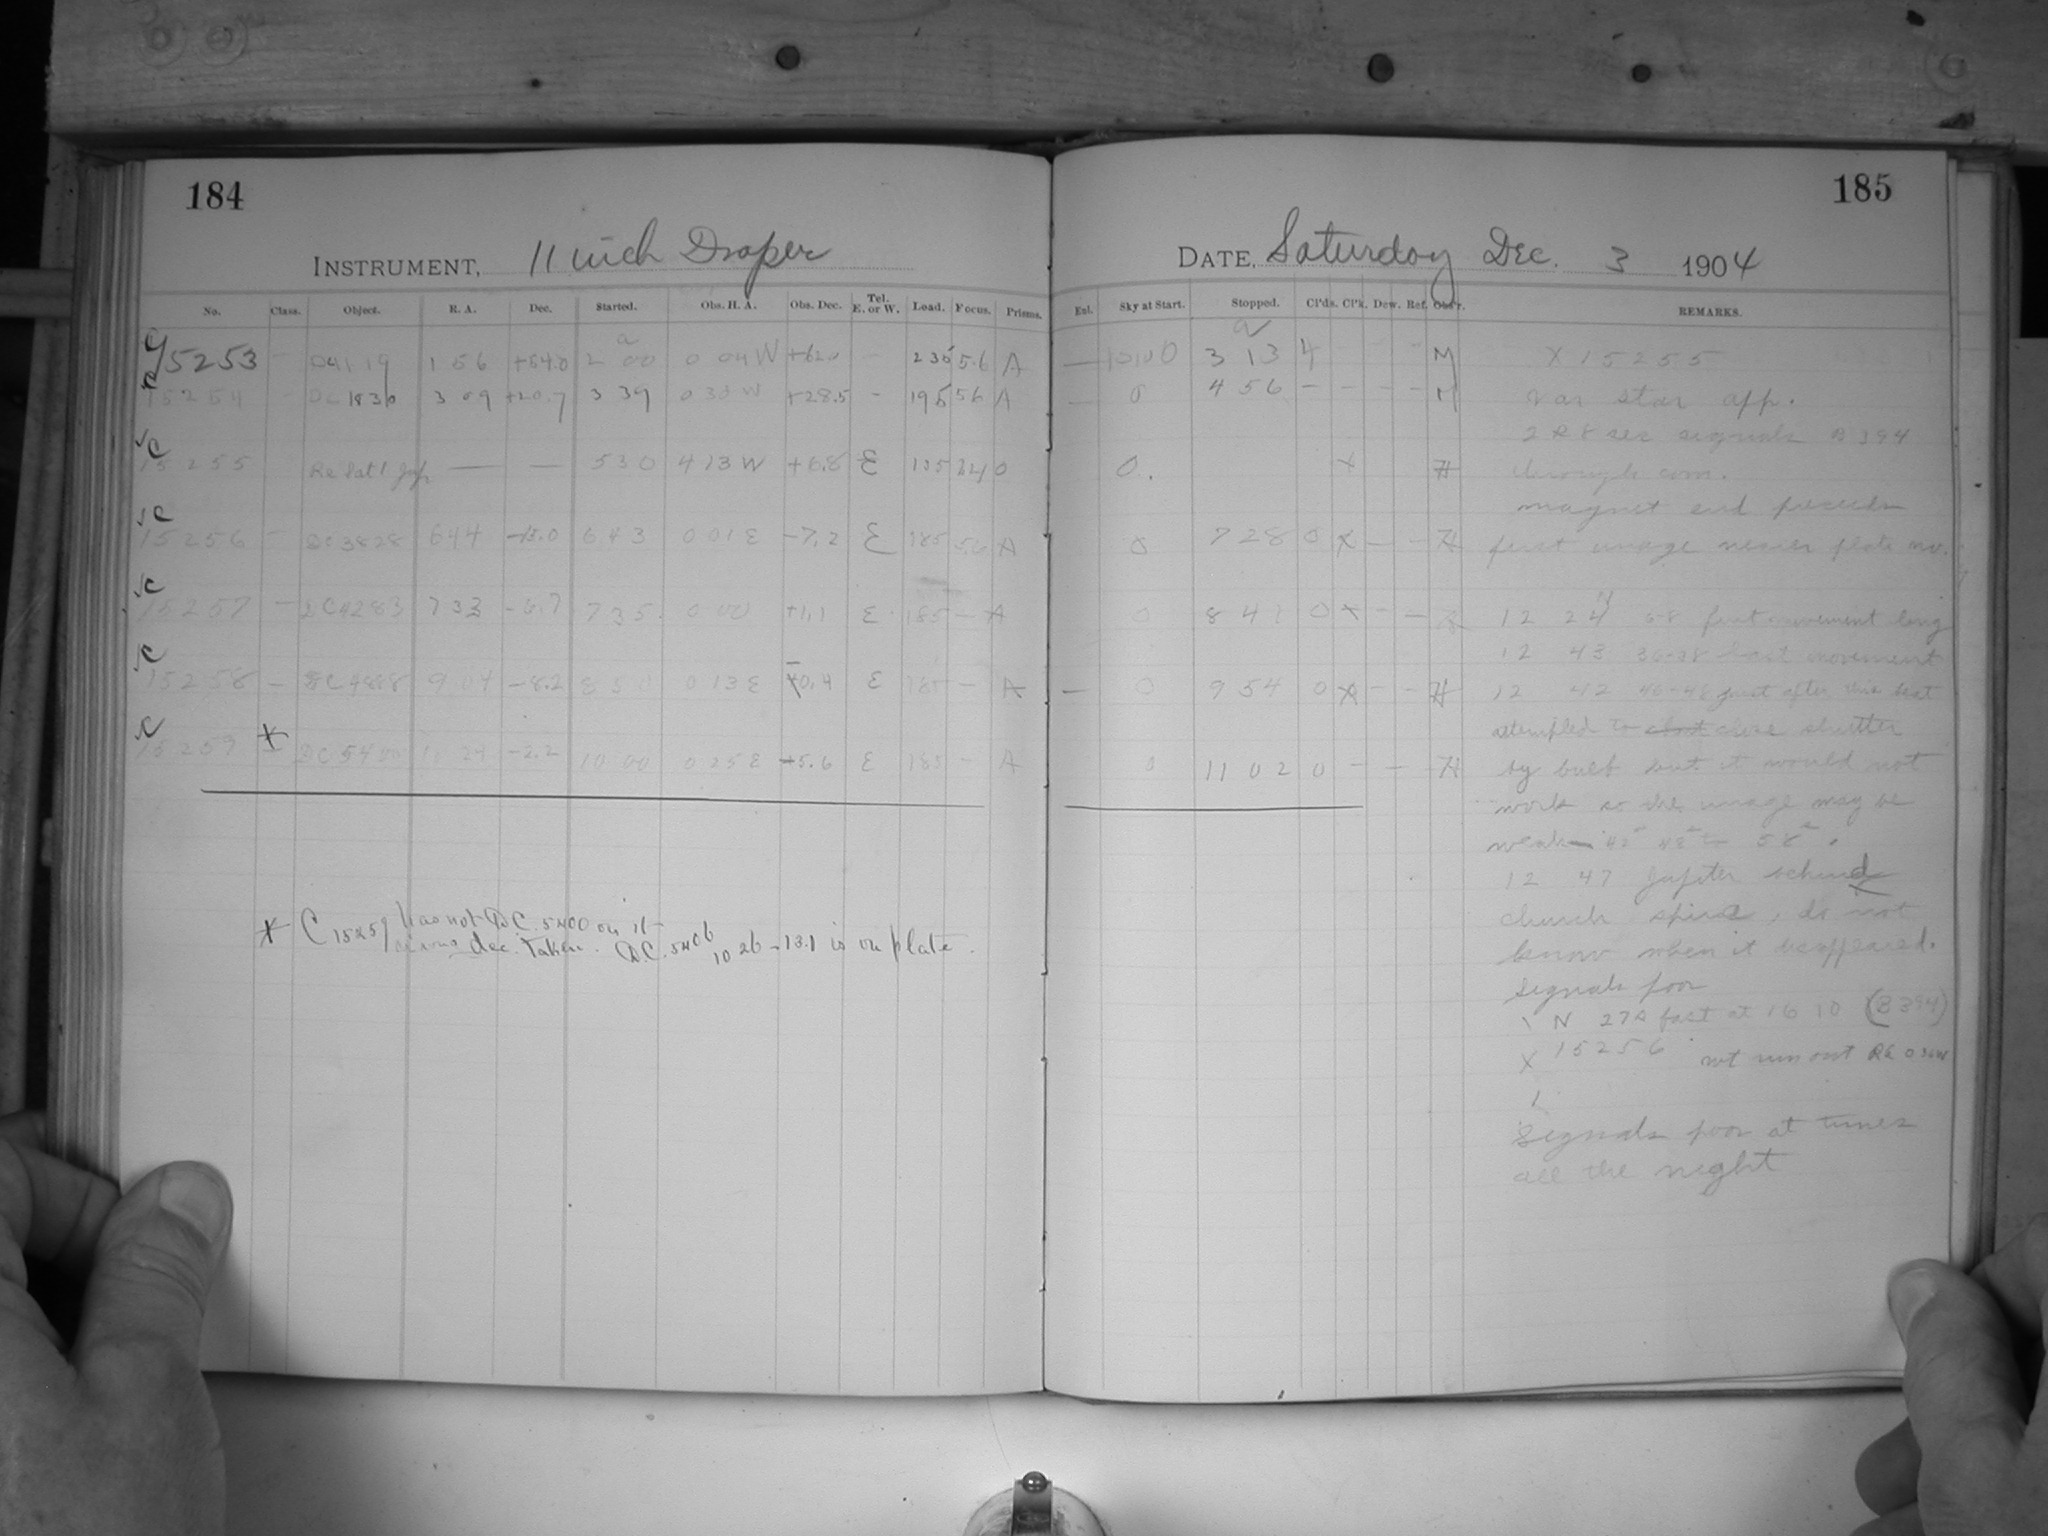 184
INSTRUMENT, 11 inch Draper
No. Class. Object. R. A. Dec. Started. Obs. H. A. Obs. Dec. Tel. E. or W. Load. Focus. Prisms.
a
C 15253 - 1 56 +54.0 2 00 0 04 W - 230 5.6 A
C 15254 - DC 1830 3 09 +20.7 3 39 0 30 W +28.5 - 195 56 A
C 15255 — — 5 30 4 13 W +6.8 E 135 240
C 15256 - DC 3828 6 44 -15.0 6 43 0 01 E -7.2 E 185 56 A
C 15257 - DC 4283 7 33 -6.7 7 35 0 00 +1.1 E 185 - A
C 15258 - DC 4888 9 04 -8.2 8 50 0 13 E 0.4 E 185 - A
C 15259 X DC 5400 10 24 -2.2 10 00 0 25 E +5.6 E 185 - A
X C 15259 has not DC. 5400 on it
dec. taken. D.C. 5406 10 26 -13.1 is on plate.
185
DATE, Saturday Dec. 3 1904
Enl. Sky at Start. Stopped. Cl'ds. Cl'k. Dew. Ref. Obs'r. REMARKS.
a
— 3 13 4 - - - M X 15255
— 0 4 56 - - - - M var star app.
2 R 8 sec signals B 394
0. X H through com.
magnet end precedes
0 7 28 0 X - - H first image nearer plate no.
0 8 47 0 X - - 12 24 6-8 first movement long
12 43 36-38 last movement
— 0 9 54 0 X - - H 12 42 46-48 just after this beat
attempted to shut close shutter
0 11 02 0 - - - H by bulb but it would not
work so the image may be
weak
12 47 Jupiter behind
church spire, do not
know when it disappeared.
Signals poor
N 27s fast at 16 10 (B 394)
X 15256 not run out
1
Signals poor at times
all the night